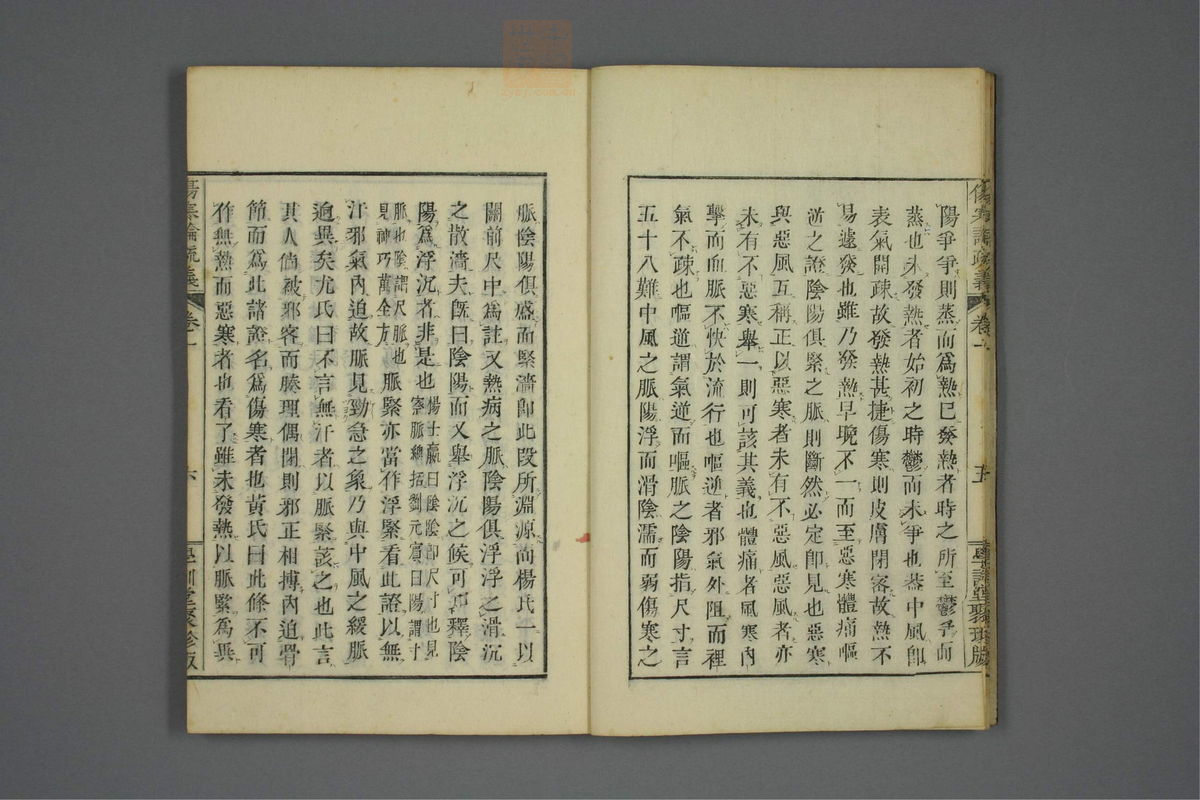 傷寒論疏義
卷一
五
學訓堂聚珍版
陽爭爭則蒸而爲熱已發熱者時之所至鬱爭而
蒸也未發熱者始初之時鬱而未爭也蓋中風卽
表氣開疎故發熱甚捷傷寒則皮膚閉密故熱不
易遽發也雖乃發熱早晚不一而至惡寒體痛嘔
逆之證陰陽俱緊之脈則斷然必定卽見也惡寒
與惡風互稱正以惡寒者未有不惡風惡風者亦
未有不惡寒舉一則可該其義也體痛者風寒內
擊而血脈不快於流行也嘔逆者邪氣外阻而裡
氣不疎也嘔逆謂氣逆而嘔脈之陰陽指尺寸言
五十八難中風之脈陽浮而滑陰濡而弱傷寒之
脈陰陽俱盛而緊濇卽此段所淵源尚楊氏一以
關前尺中爲註又熱病之脈陰陽俱浮浮之滑沉
之散濇夫既曰陰陽而又舉浮沉之候可卽釋陰
陽爲浮沉者非是也楊士瀛曰陰陰卽尺寸也見察脈總括劉元賓曰陽謂寸
脈也陰謂尺脈也見神巧萬全方脈緊亦當作浮緊看此證以無
汗邪氣內迫故脈見勁急之象乃與中風之緩脈
逈異矣尤氏曰不言無汗者以脈緊該之也此言
其人尚被邪客而腠理偶閉則邪正相搏內迫骨
節而爲此諸證名爲傷寒者也黃氏曰此條不可
作無熱而惡寒者也看了雖未發熱以脈緊爲異
傷寒論疏義
卷一
六
學訓堂聚珍版